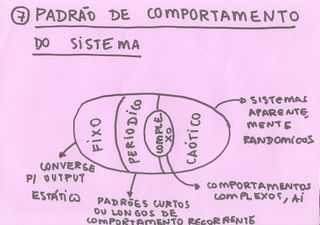 7 PADRÃO DE COMPORTAMENTO
DO SISTEMA
FIXO
PERIODICO
COMPLE
XO
CAÓTICO
SISTEMAS
APARENTE,
MENTE
RANDOMICOS
CONVERGE
P/ OUTPUT
ESTÁTICO
PADRÕES CURTOS
OU LONGOS DE
COMPORTAMENTO RECORRENTE
COMPORTAMENTOS
COMPLEXOS, AI